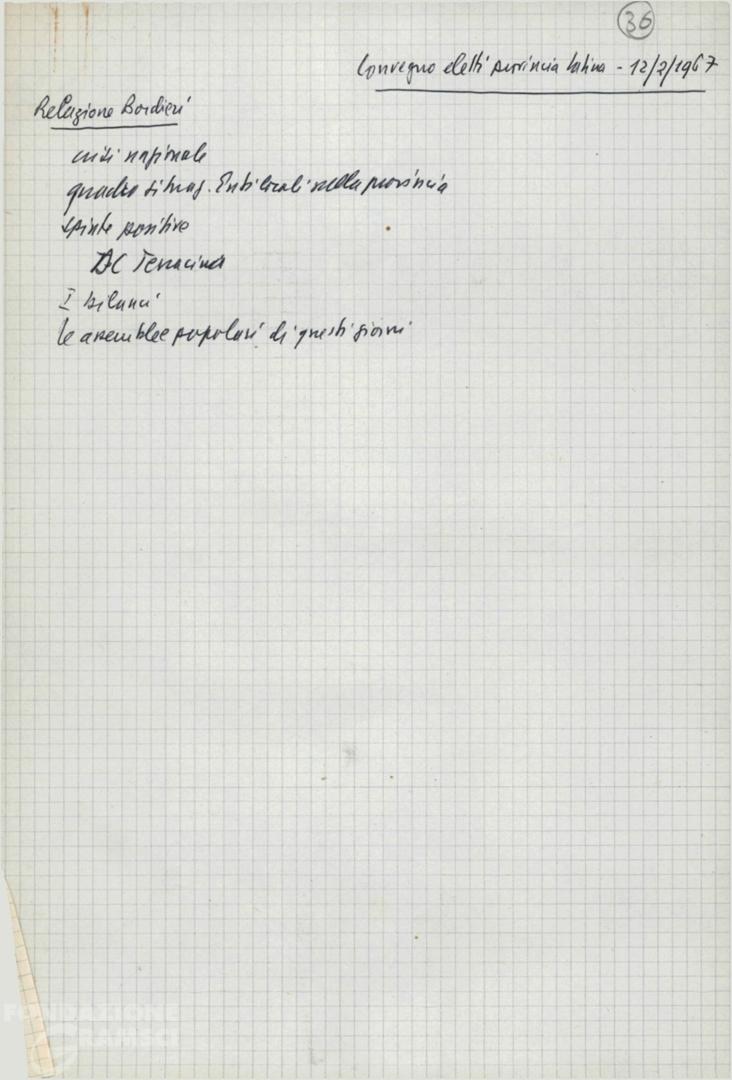 36
Convegno eletti provincia Latina - 12/2/1967
Relazione Bordieri
crisi nazionale
quadro situaz. Enti locali nella provincia
spinte positive
DC Terracina
I bilanci
le assemblee popolari di questi giorni
FONDAZIONE
GRAMSCI